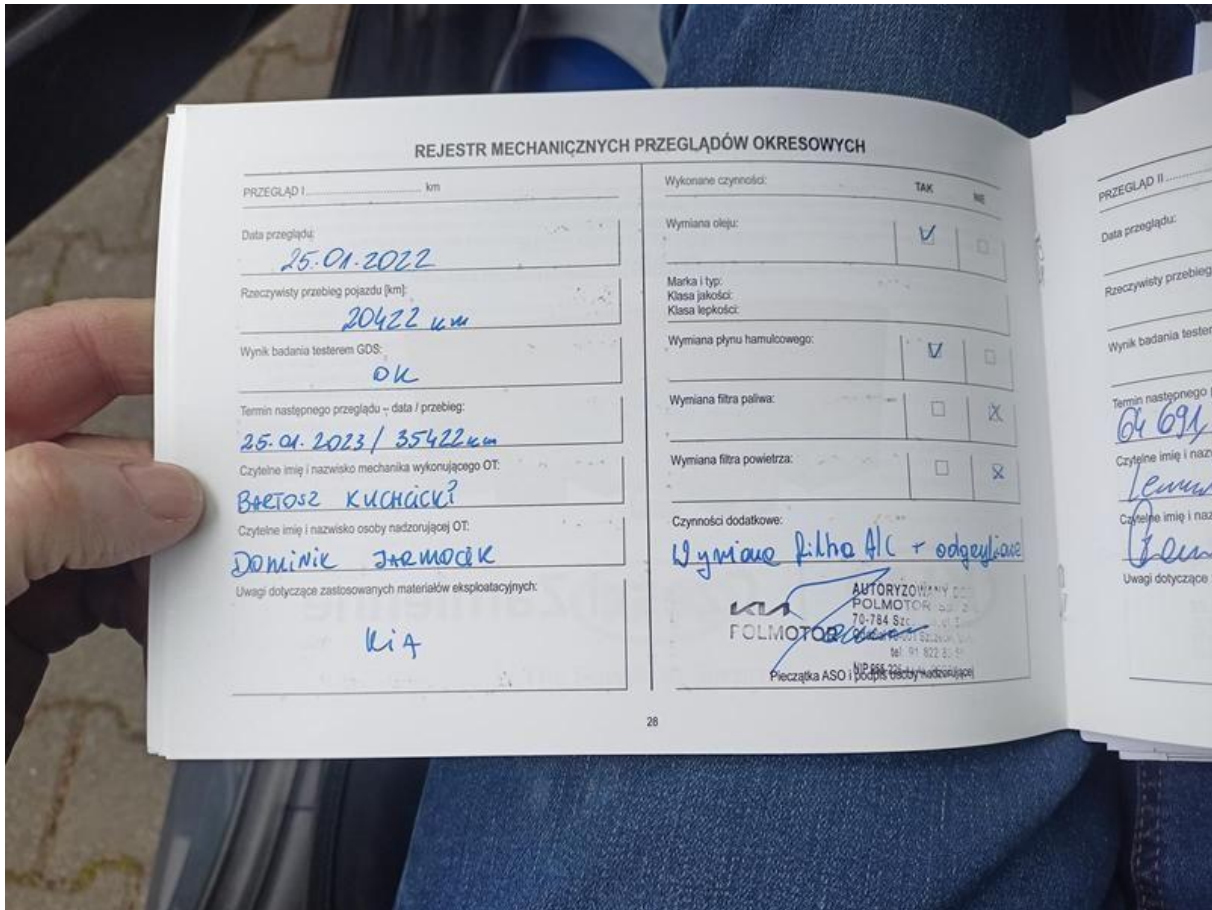 REJESTR MECHANICZNYCH PRZEGLĄDÓW OKRESOWYCH
PRZEGLĄD I ........ km
Data przeglądu:
25.01.2022
Rzeczywisty przebieg pojazdu [km]:
20422 km
Wynik badania testerem GDS:
OK
Termin następnego przeglądu – data / przebieg:
25.01.2023 / 35422km
Czytelne imię i nazwisko mechanika wykonującego OT:
BARTOSZ
Czytelne imię i nazwisko osoby nadzorującej OT:
DOMINIK
Uwagi dotyczące zastosowanych materiałów eksploatacyjnych:
KiA
Wykonane czynności: TAK NIE
Wymiana oleju:
Marka i typ:
Klasa jakości:
Klasa lepkości:
Wymiana płynu hamulcowego:
Wymiana filtra paliwa:
Wymiana filtra powietrza:
Czynności dodatkowe:
Wymiana filtra A/C +
KIA
POLMOTOR
AUTORYZOWANY
POLMOTOR
70-784
tel: 91 822
NIP
Pieczątka ASO i podpis osoby nadzorującej
28
PRZEGLĄD II ........
Data przeglądu:
Rzeczywisty przebieg
Wynik badania
Termin następnego
64 691,
Czytelne imię i
Czytelne imię i
Uwagi dotyczące